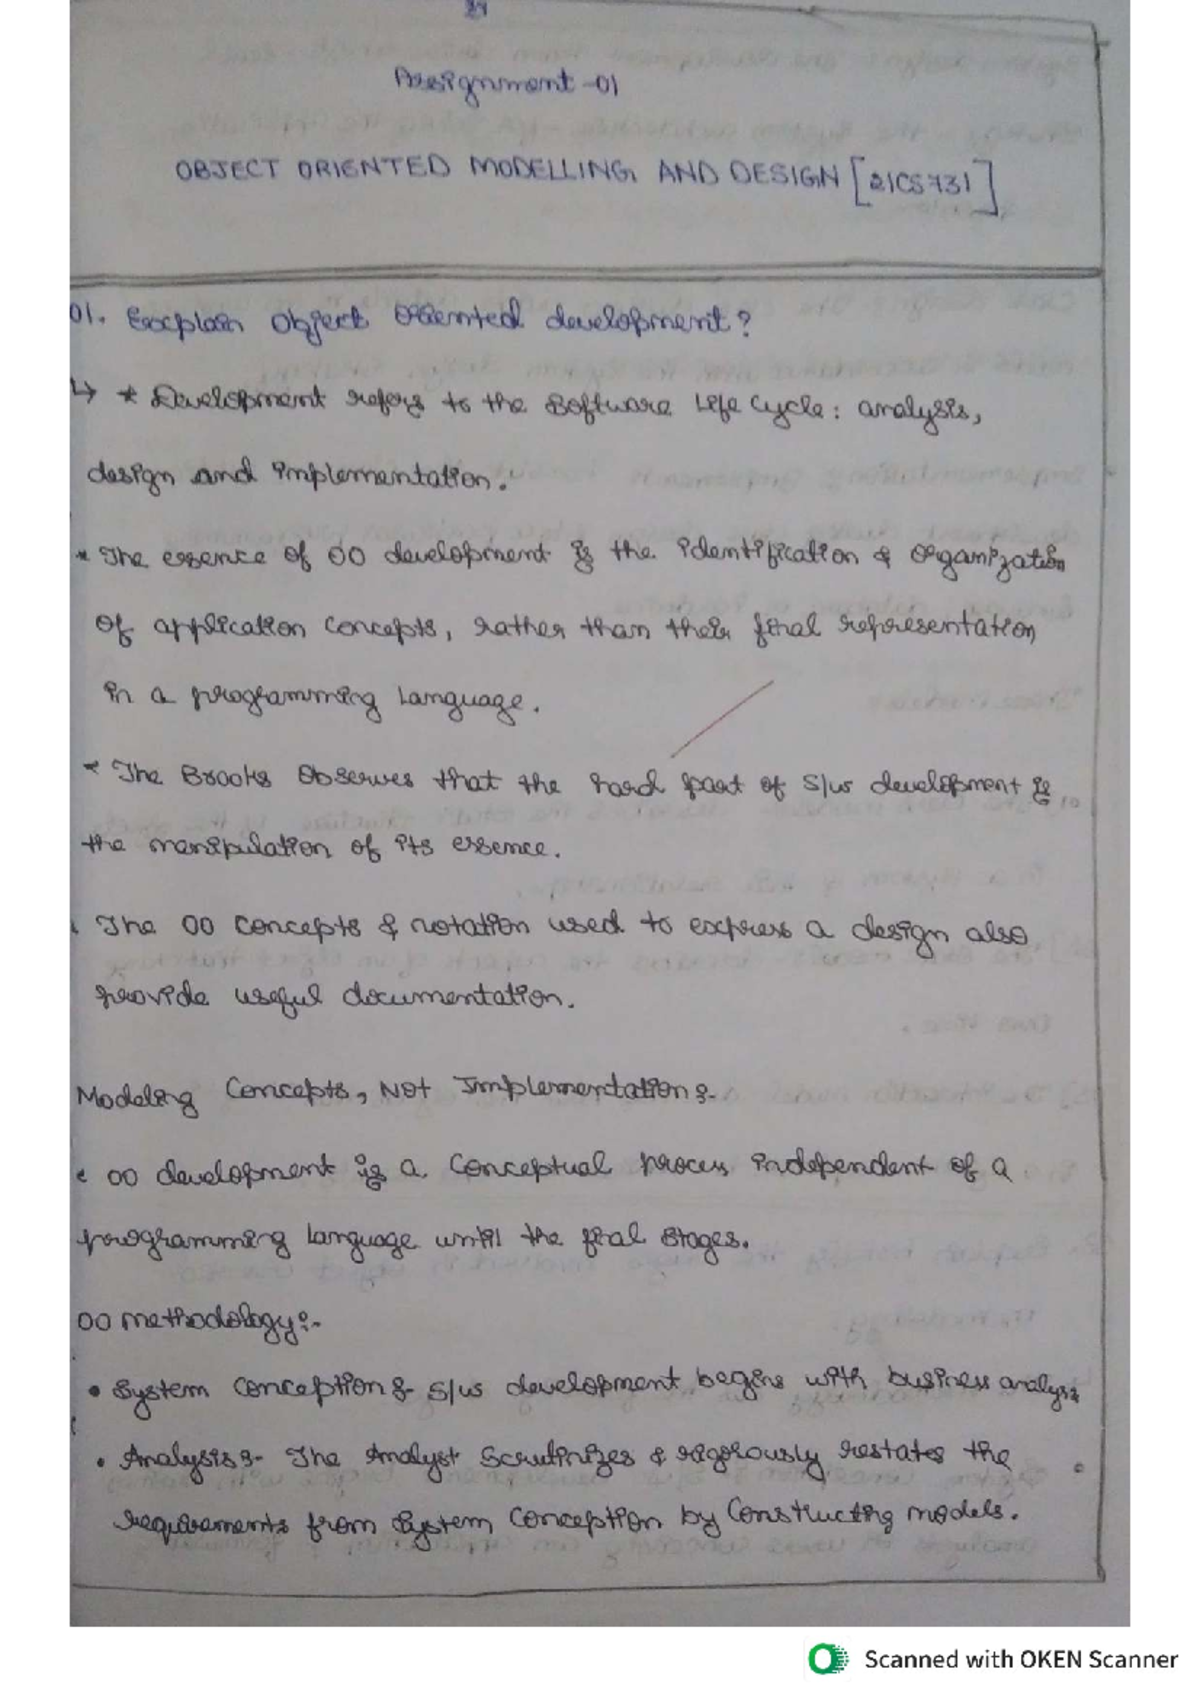 Assignment-01
OBJECT ORIENTED MODELLING AND DESIGN [21CS731]
01. Explain Object Oriented development?
↳ * Development refers to the Software Life Cycle: analysis,
design and implementation.
* The essence of OO development is the identification & Organization
of application concepts, rather than their final representation
in a programming language.
* The Brooks Observes that the hard part of S/w development is
the manipulation of its essence.
The OO concepts & notation used to express a design also
provide useful documentation.
Modeling Concepts, Not Implementation:-
• OO development is a conceptual process independent of a
programming language until the final stages.
OO methodology:-
• System conception:- S/w development begins with business analysis
• Analysis:- The Analyst Scrutinizes & rigorously restates the
requirements from System conception by Constructing models.
Scanned with OKEN Scanner